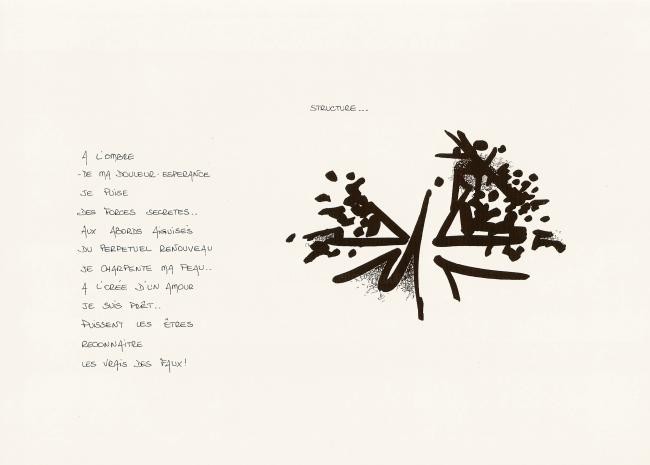 STRUCTURE...
A L'OMBRE
DE MA DOULEUR-ESPERANCE
JE PUISE
DES FORCES SECRETES..
AUX ABORDS AIGUISES
DU PERPETUEL RENOUVEAU
JE CHARPENTE MA PEAU..
A L'OREE D'UN AMOUR
JE SUIS PORT..
PUISSENT LES ÊTRES
RECONNAITRE
LES VRAIS DES FAUX!